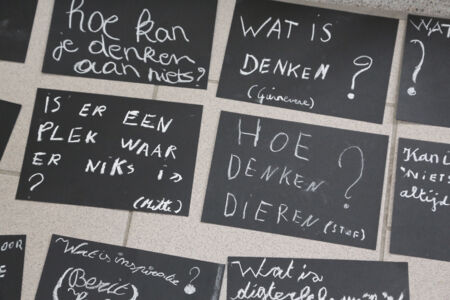 hoe kan
je denken
aan niets?
WAT IS
DENKEN ?
(Guinevere)
WAT
?
IS ER EEN
PLEK WAAR
ER NIKS IS
?
(Mitte)
HOE
DENKEN ?
DIEREN (STEF)
Kan
"NIETS
altijd
OOR
Wat is inspiratie?
(Berit)
Wat is